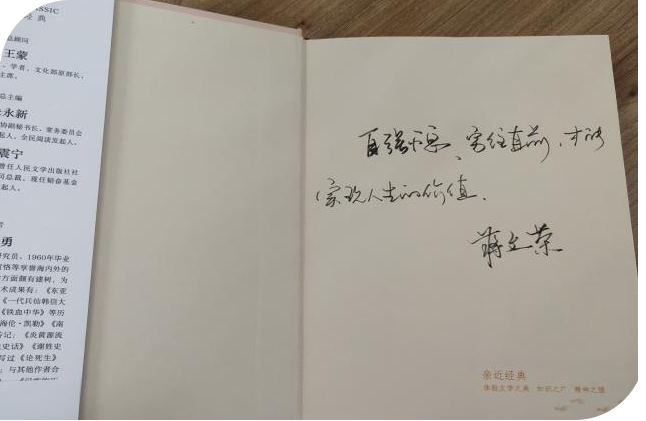 SSIC
经典
总顾问
王蒙
、学者，文化部原部长，
主席。
总主编
永新
协副秘书长，常务委员会
起人，全民阅读发起人。
震宁
曾任人民文学出版社社
司总裁，现任韬奋基金
起人。
勇
究员，1960年毕业
恪等享誉海内外的
方面颇有建树，为
术成果有：《东亚
《一代兵仙韩信大
《铁血中华》等历
海伦·凯勒》《南
传记；《炎黄源流
史话》《谢姓史
写过《论死生》
；与其他作者合
自强不息、勇往直前，才能
实现人生的价值。
蒋立荣
亲近经典
体验文学之美 知识之广 精神之强